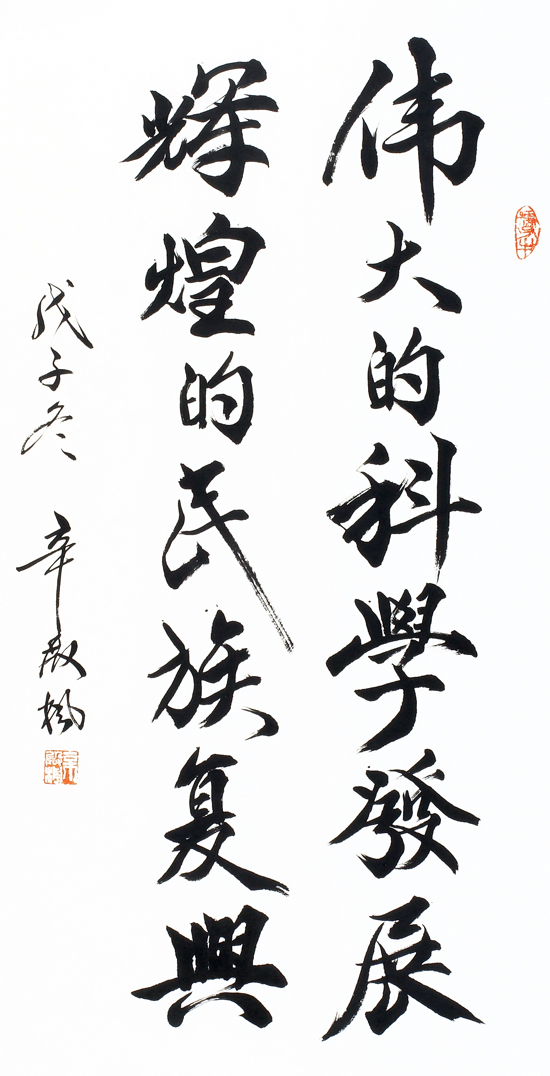 伟大的科學發展
輝煌的民族复興
戊子冬 辛殿楓